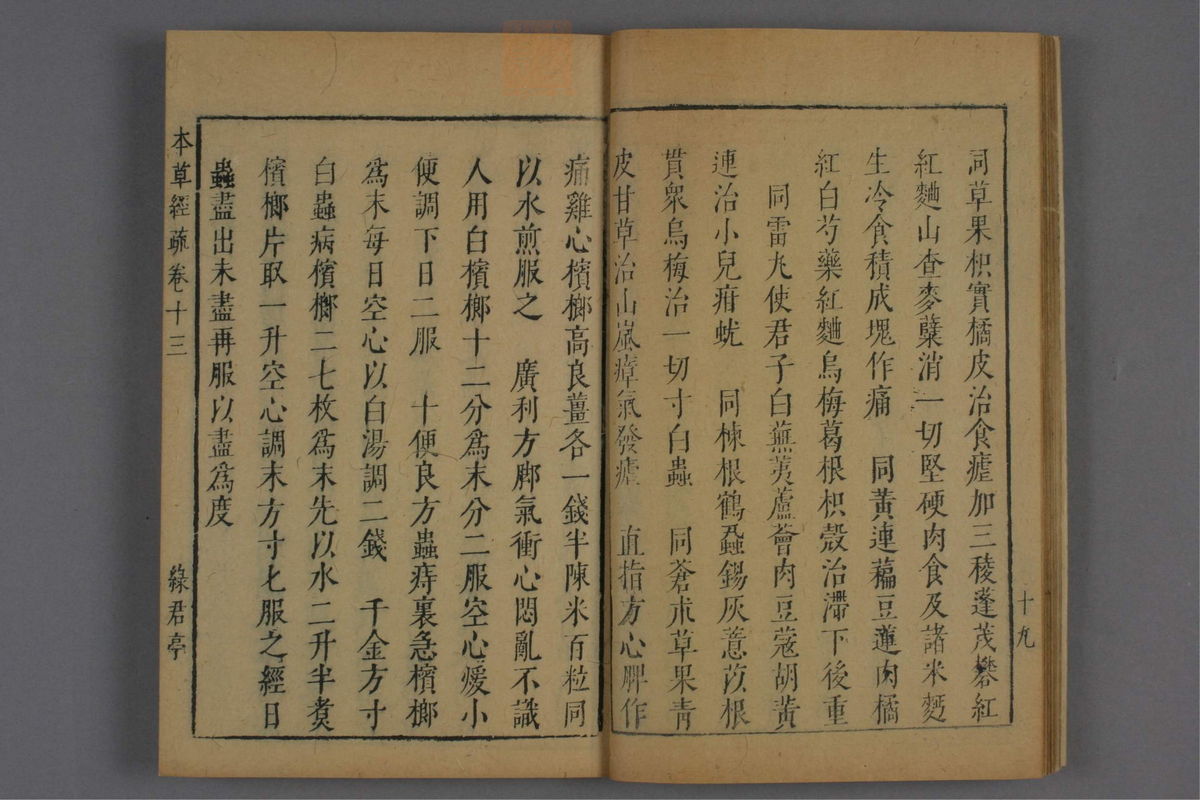 十九
同草果枳實橘皮治食瘧加三稜蓬茂礬紅
紅麯山查麥蘖消一切堅硬肉食及諸米麪
生冷食積成塊作痛　同黃連藊豆蓮肉橘
紅白芍藥紅麯烏梅葛根枳殼治滯下後重
同雷丸使君子白蕪荑蘆薈肉豆蔻胡黃
連治小兒疳蚘　同楝根鶴蝨錫灰薏苡根
貫衆烏梅治一切寸白蟲　同蒼朮草果青
皮甘草治山嵐瘴氣發瘧　直指方心脾作
痛雞心檳榔高良薑各一錢半陳米百粒同
以水煎服之　廣利方腳氣衝心悶亂不識
人用白檳榔十二分爲末分二服空心煖小
便調下日二服　十便良方蟲痔裏急檳榔
爲末每日空心以白湯調二錢　千金方寸
白蟲病檳榔二七枚爲末先以水二升半煑
檳榔片取一升空心調末方寸匕服之經日
蟲盡出未盡再服以盡爲度
本草經疏卷十三
綠君亭